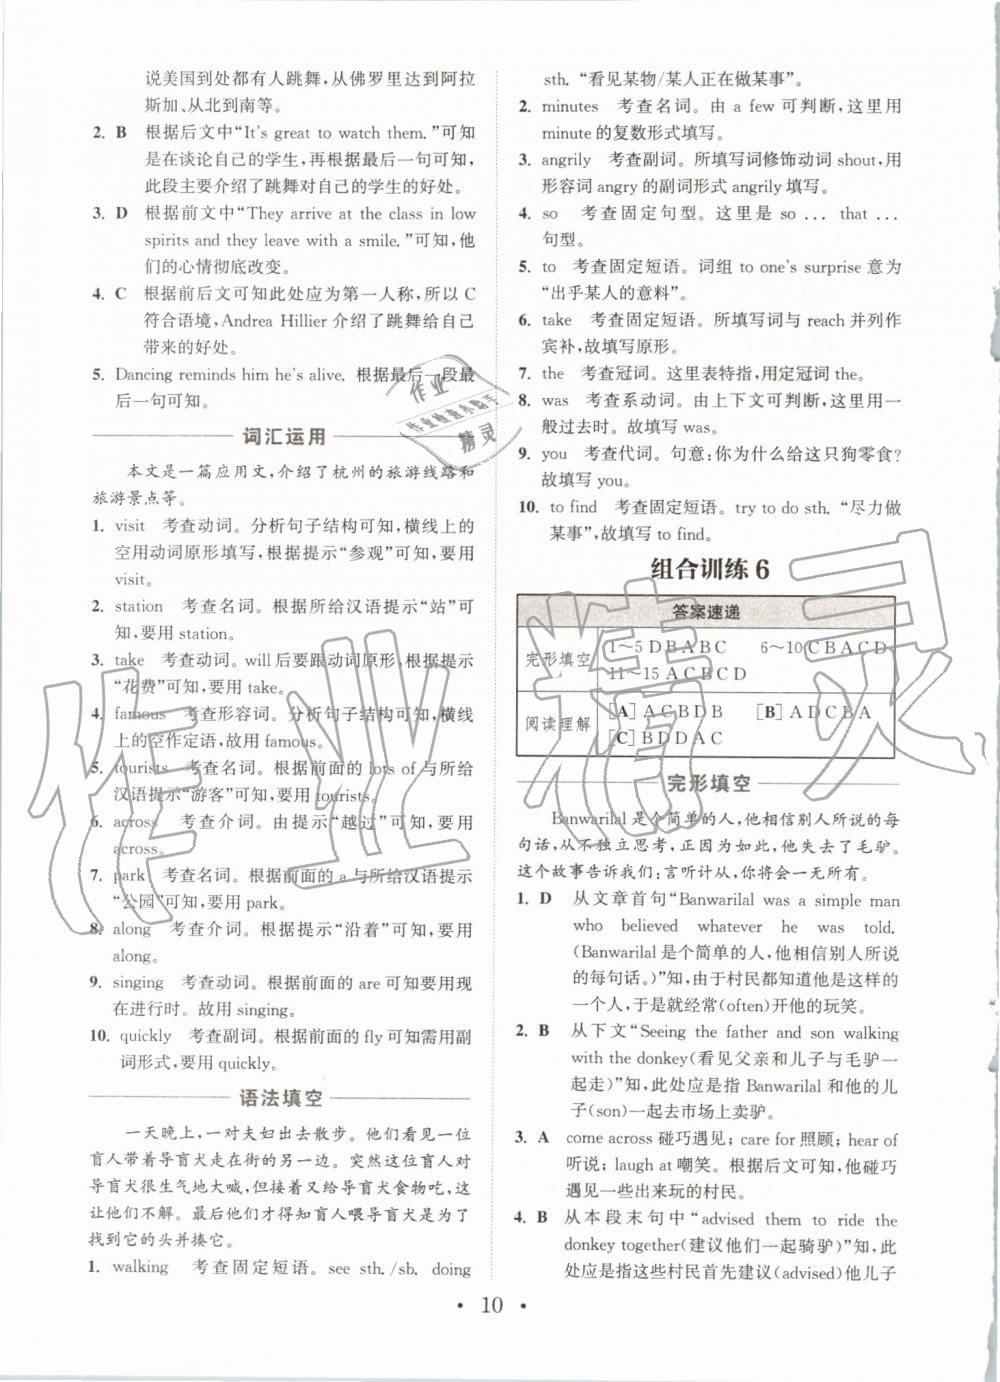 说美国到处都有人跳舞,从佛罗里达到阿拉
斯加、从北到南等。
2. B 根据后文中“It's great to watch them.”可知
是在谈论自己的学生,再根据最后一句可知,
此段主要介绍了跳舞对自己的学生的好处。
3. D 根据前文中“They arrive at the class in low
spirits and they leave with a smile.”可知,他
们的心情彻底改变。
4. C 根据前后文可知此处应为第一人称,所以 C
符合语境,Andrea Hillier 介绍了跳舞给自己
带来的好处。
5. Dancing reminds him he's alive. 根据最后一段最
后一句可知。
词汇运用
本文是一篇应用文,介绍了杭州的旅游线路和
旅游景点等。
1. visit 考查动词。分析句子结构可知,横线上的
空用动词原形填写,根据提示“参观”可知,要用
visit。
2. station 考查名词。根据所给汉语提示“站”可
知,要用 station。
3. take 考查动词。will 后要跟动词原形,根据提示
“花费”可知,要用 take。
4. famous 考查形容词。分析句子结构可知,横线
上的空作定语,故用 famous。
5. tourists 考查名词。根据前面的 lots of 与所给
汉语提示“游客”可知,要用 tourists。
6. across 考查介词。由提示“越过”可知,要用
across。
7. park 考查名词。根据前面的 a 与所给汉语提示
“公园”可知,要用 park。
8. along 考查介词。根据提示“沿着”可知,要用
along。
9. singing 考查动词。根据前面的 are 可知要用现
在进行时。故用 singing。
10. quickly 考查副词。根据前面的 fly 可知需用副
词形式,要用 quickly。
语法填空
一天晚上,一对夫妇出去散步。他们看见一位
盲人带着导盲犬走在街的另一边。突然这位盲人对
导盲犬很生气地大喊,但是接着又给导盲犬食物吃,这
让他们不解。最后他们才得知盲人喂导盲犬是为了
找到它的头并揍它。
1. walking 考查固定短语。see sth./sb. doing
sth. “看见某物/某人正在做某事”。
2. minutes 考查名词。由 a few 可判断,这里用
minute 的复数形式填写。
3. angrily 考查副词。所填写词修饰动词 shout,用
形容词 angry 的副词形式 angrily 填写。
4. so 考查固定句型。这里是 so ... that ...
句型。
5. to 考查固定短语。词组 to one's surprise 意为
“出乎某人的意料”。
6. take 考查固定短语。所填写词与 reach 并列作
宾补,故填写原形。
7. the 考查冠词。这里表特指,用定冠词 the。
8. was 考查系动词。由上下文可判断,这里用一
般过去时。故填写 was。
9. you 考查代词。句意:你为什么给这只狗零食?
故填写 you。
10. to find 考查固定短语。try to do sth. “尽力做
某事”,故填写 to find。
组合训练 6
答案速递
完形填空 1～5 D B A B C 6～10 C B A C D
11～15 A C B C D
阅读理解 [A] A C B D B [B] A D C B A
[C] B D D A C
完形填空
Banwarilal 是个简单的人,他相信别人所说的每
句话,从不独立思考,正因为如此,他失去了毛驴。
这个故事告诉我们:言听计从,你将会一无所有。
1. D 从文章首句“Banwarilal was a simple man
who believed whatever he was told.
(Banwarilal 是个简单的人,他相信别人所说
的每句话。)”知,由于村民都知道他是这样的
一个人,于是就经常(often)开他的玩笑。
2. B 从下文“Seeing the father and son walking
with the donkey(看见父亲和儿子与毛驴一
起走)”知,此处应是指 Banwarilal 和他的儿
子(son)一起去市场上卖驴。
3. A come across 碰巧遇见;care for 照顾;hear of
听说;laugh at 嘲笑。根据后文可知,他碰巧
遇见一些出来玩的村民。
4. B 从本段末句中“advised them to ride the
donkey together(建议他们一起骑驴)”知,此
处应是指这些村民首先建议(advised)他儿子
• 10 •
作业
作业检查小助手
精灵
作业精灵